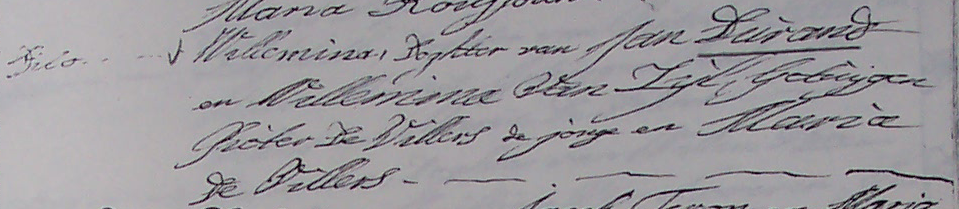 Maria
Dito Willemina, Dogtter van Jan Durand
en Willemina Van Zijl, Getuijgen
Pieter De Villers de jonge en Maria
de Villers -
en Maria